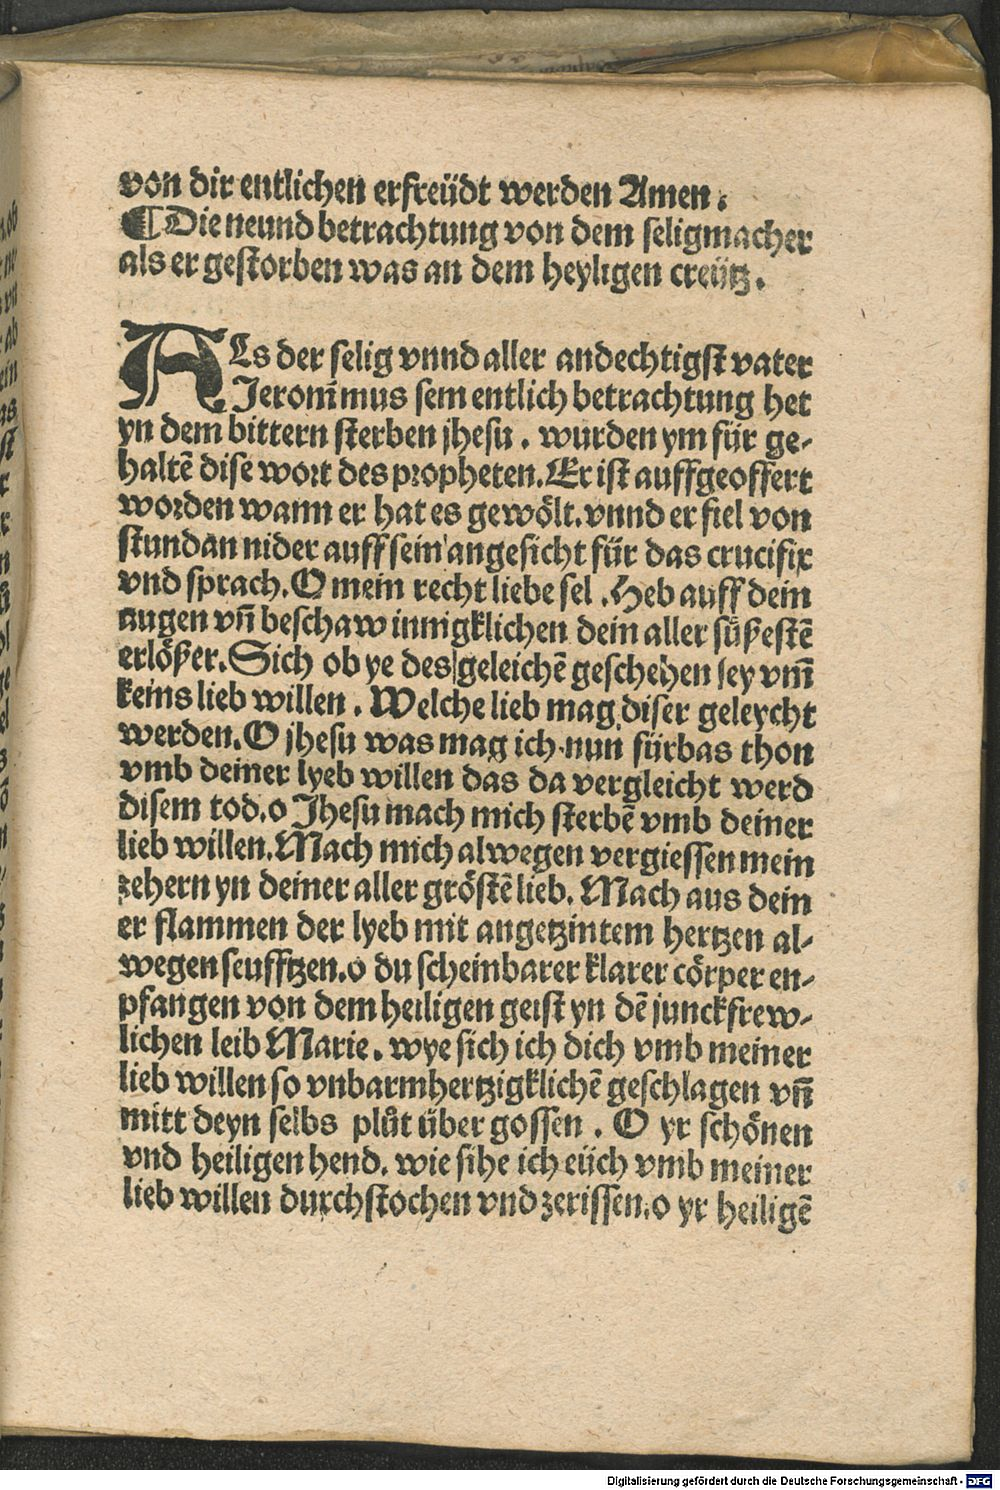 von dir entlichen erfreüdt werden Amen.
¶ Die neund betrachtung von dem seligmacher
als er gestorben was an dem heyligen creütz.
ALs der selig vnnd aller andechtigst vater
Jeronimus sein entlich betrachtung het
yn dem bittern sterben jhesu. wurden ym für ge-
haltē dise wort des propheten. Er ist auffgeoffert
worden wann er hat es gewölt. vnnd er fiel von
stundan nider auff sein angesicht für das crucifix
vnd sprach. O mein recht liebe sel. Heb auff dein
augen vn̄ beschaw innigklichen dein aller süßestē
erlößer. Sich ob ye des geleichē geschehen sey vm̄
keins lieb willen. Welche lieb mag diser geleycht
werden. O jhesu was mag ich nun fürbas thon
vmb deiner lyeb willen das da vergleicht werd
disem tod. o Jhesu mach mich sterbē vmb deiner
lieb willen. Mach mich alwegen vergiessen mein
zehern yn deiner aller gröstē lieb. Mach aus dein
er flammen der lyeb mit angetzintem hertzen al-
wegen seufftzen. o du scheinbarer klarer cörper en-
pfangen von dem heiligen geist yn dē junckfrew-
lichen leib Marie. wye sich ich dich vmb meiner
lieb willen so vnbarmhertzigklichē geschlagen vn̄
mitt deyn selbs plůt über gossen. O yr schönen
vnd heiligen hend. wie sihe ich eüch vmb meiner
lieb willen durchstochen vnd zerissen. o yr heiligē
Digitalisierung gefördert durch die Deutsche Forschungsgemeinschaft - DFG